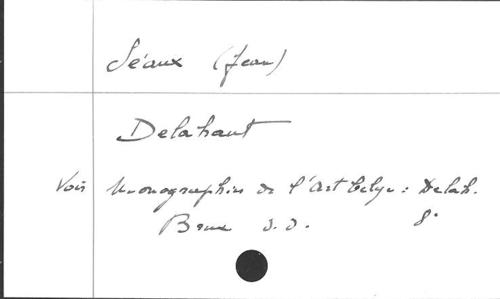 Séaux (Jean)
Delahaut
Voir Monographies de l'Art belge : Delah.
Brux s.d. 8°